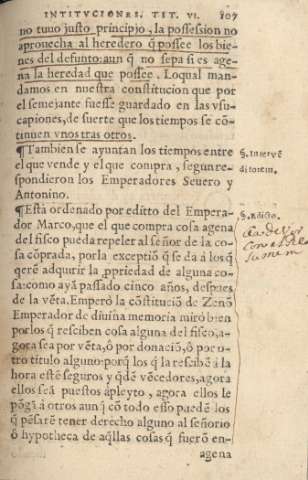 INTITVCIONES. TIT. VI. 107
no tuuo justo principio, la possession no
aprouecha al heredero q̃ possee los bie-
nes del defunto: aun q̃ no sepa si es age-
na la heredad que possee. Loqual man-
damos en nuestra constitucion que por
el semejante fuesse guardado en las vsu-
capiones, de suerte que los tiempos se cõ-
tinuen vnos tras otros.
¶Tambien se ayuntan los tiempos entre
el que vende y el que compra, segun re-
spondieron los Emperadores Seuero y
Antonino.
¶Està ordenado por editto del Empera-
dor Marco, que el que compra cosa agena
del fisco pueda repeler al señor de la co-
sa cõprada, por la exceptiõ q̃ se da à los q̃
qerẽ adquirir la ppriedad de alguna co-
sa: como ayã passado cinco años, despues
de la vẽta. Emperò la cõstituciõ de Zenõ
Emperador de diuina memoria mirò bien
por los q̃ resciben cosa alguna del fisco, a-
gora sea por vẽta, ô por donaciõ, ô por o-
tro titulo alguno: porq̃ los q̃ la rescibẽ à la
hora estẽ seguros y qdẽ vẽcedores, agora
ellos seã puestos âpleyto, agora ellos le
põgã à otros aun q̃ cõ todo esso puedẽ los
q̃ pẽsarẽ tener derecho alguno al señorio
ô hypotheca de aq̃llas cosas q̃ fuerõ en-
agena
§. Inter vẽ
ditorem.
§. Edicto.